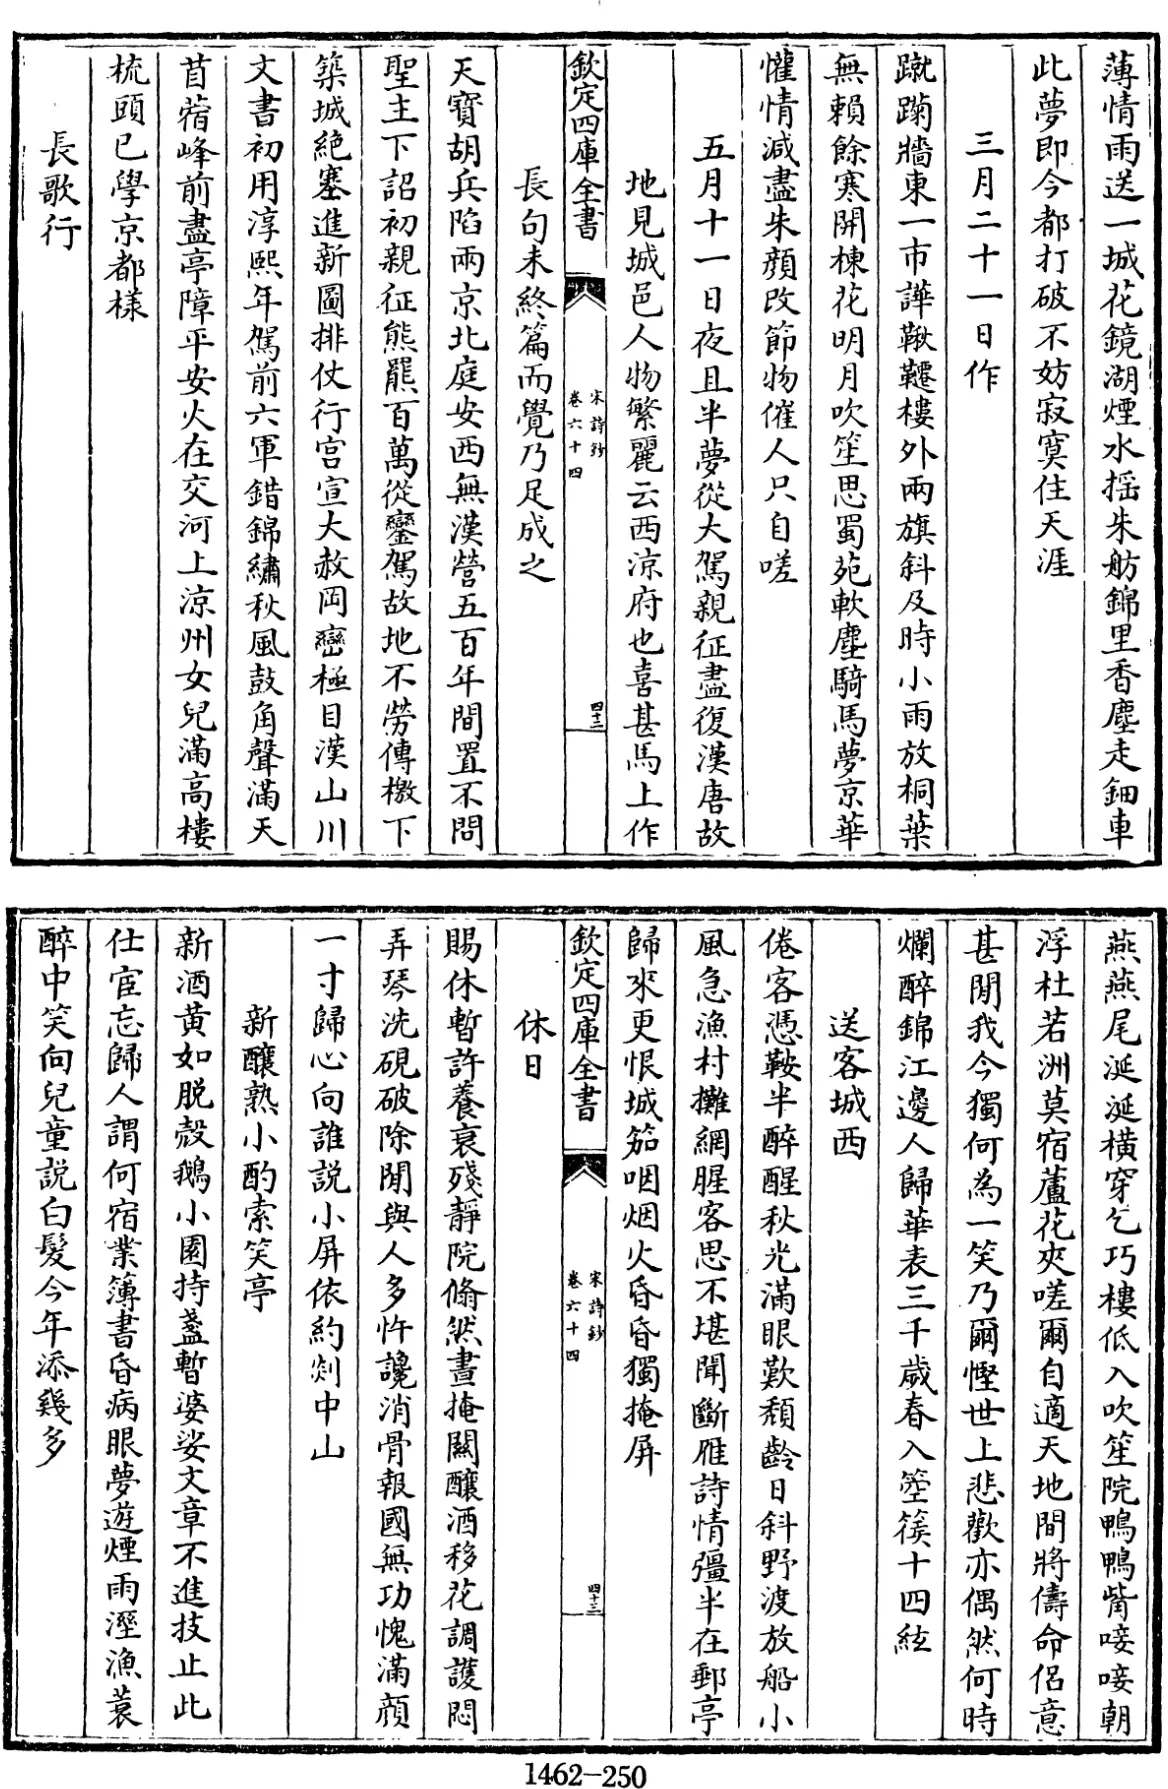 薄情雨送一城花鏡湖煙水揺朱舫錦里香塵走鈿車
此夢即今都打破不妨寂寞住天涯
三月二十一日作
蹴踘牆東一市譁鞦韆樓外兩旗斜及時小雨放桐葉
無賴餘寒開楝花明月吹笙思蜀苑軟塵騎馬夢京華
懽情減盡朱顏改節物催人只自嗟
五月十一日夜且半夢從大駕親征盡復漢唐故
地見城邑人物繁麗云西涼府也喜甚馬上作
欽定四庫全書
宋詩鈔
卷六十四
四十二
長句未終篇而覺乃足成之
天寶胡兵陷兩京北庭安西無漢營五百年間置不問
聖主下詔初親征熊羆百萬從鑾駕故地不勞傳檄下
築城絶塞進新圖排仗行宫宣大赦岡巒極目漢山川
文書初用淳熙年駕前六軍錯錦繡秋風鼓角聲滿天
苜蓿峰前盡亭障平安火在交河上涼州女兒滿高樓
梳頭已學京都樣
長歌行
燕燕尾涎涎横穿乞巧樓低入吹笙院鴨鴨觜唼唼朝
浮杜若洲莫宿蘆花夾嗟爾自適天地間將儔命侶意
甚閒我今獨何為一笑乃爾慳世上悲歡亦偶然何時
爛醉錦江邊人歸華表三千歲春入箜篌十四絃
送客城西
倦客憑鞍半醉醒秋光滿眼歎頽齡日斜野渡放船小
風急漁村攤網腥客思不堪聞斷雁詩情彊半在郵亭
歸來更恨城笳咽烟火昏昏獨掩屏
欽定四庫全書
宋詩鈔
卷六十四
四十三
休日
賜休暫許養衰殘靜院翛然晝掩關釀酒移花調護悶
弄琴洗硯破除閒與人多忤讒消骨報國無功愧滿顔
一寸歸心向誰説小屏依約剡中山
新釀熟小酌索笑亭
新酒黄如脱殻鵝小園持盞暫婆娑文章不進技止此
仕宦忘歸人謂何宿業簿書昏病眼夢遊煙雨溼漁蓑
醉中笑向兒童説白髮今年添幾多
1462—250